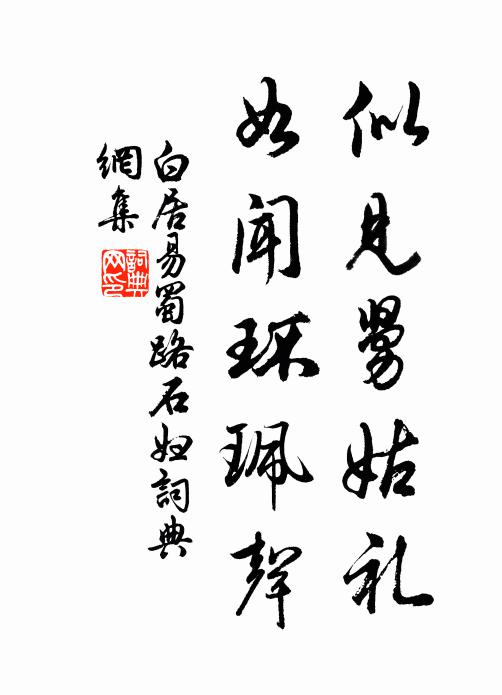 似見舅姑礼
如闻环珮聲
白居易蜀路石妇詞典
網集
詞典网印